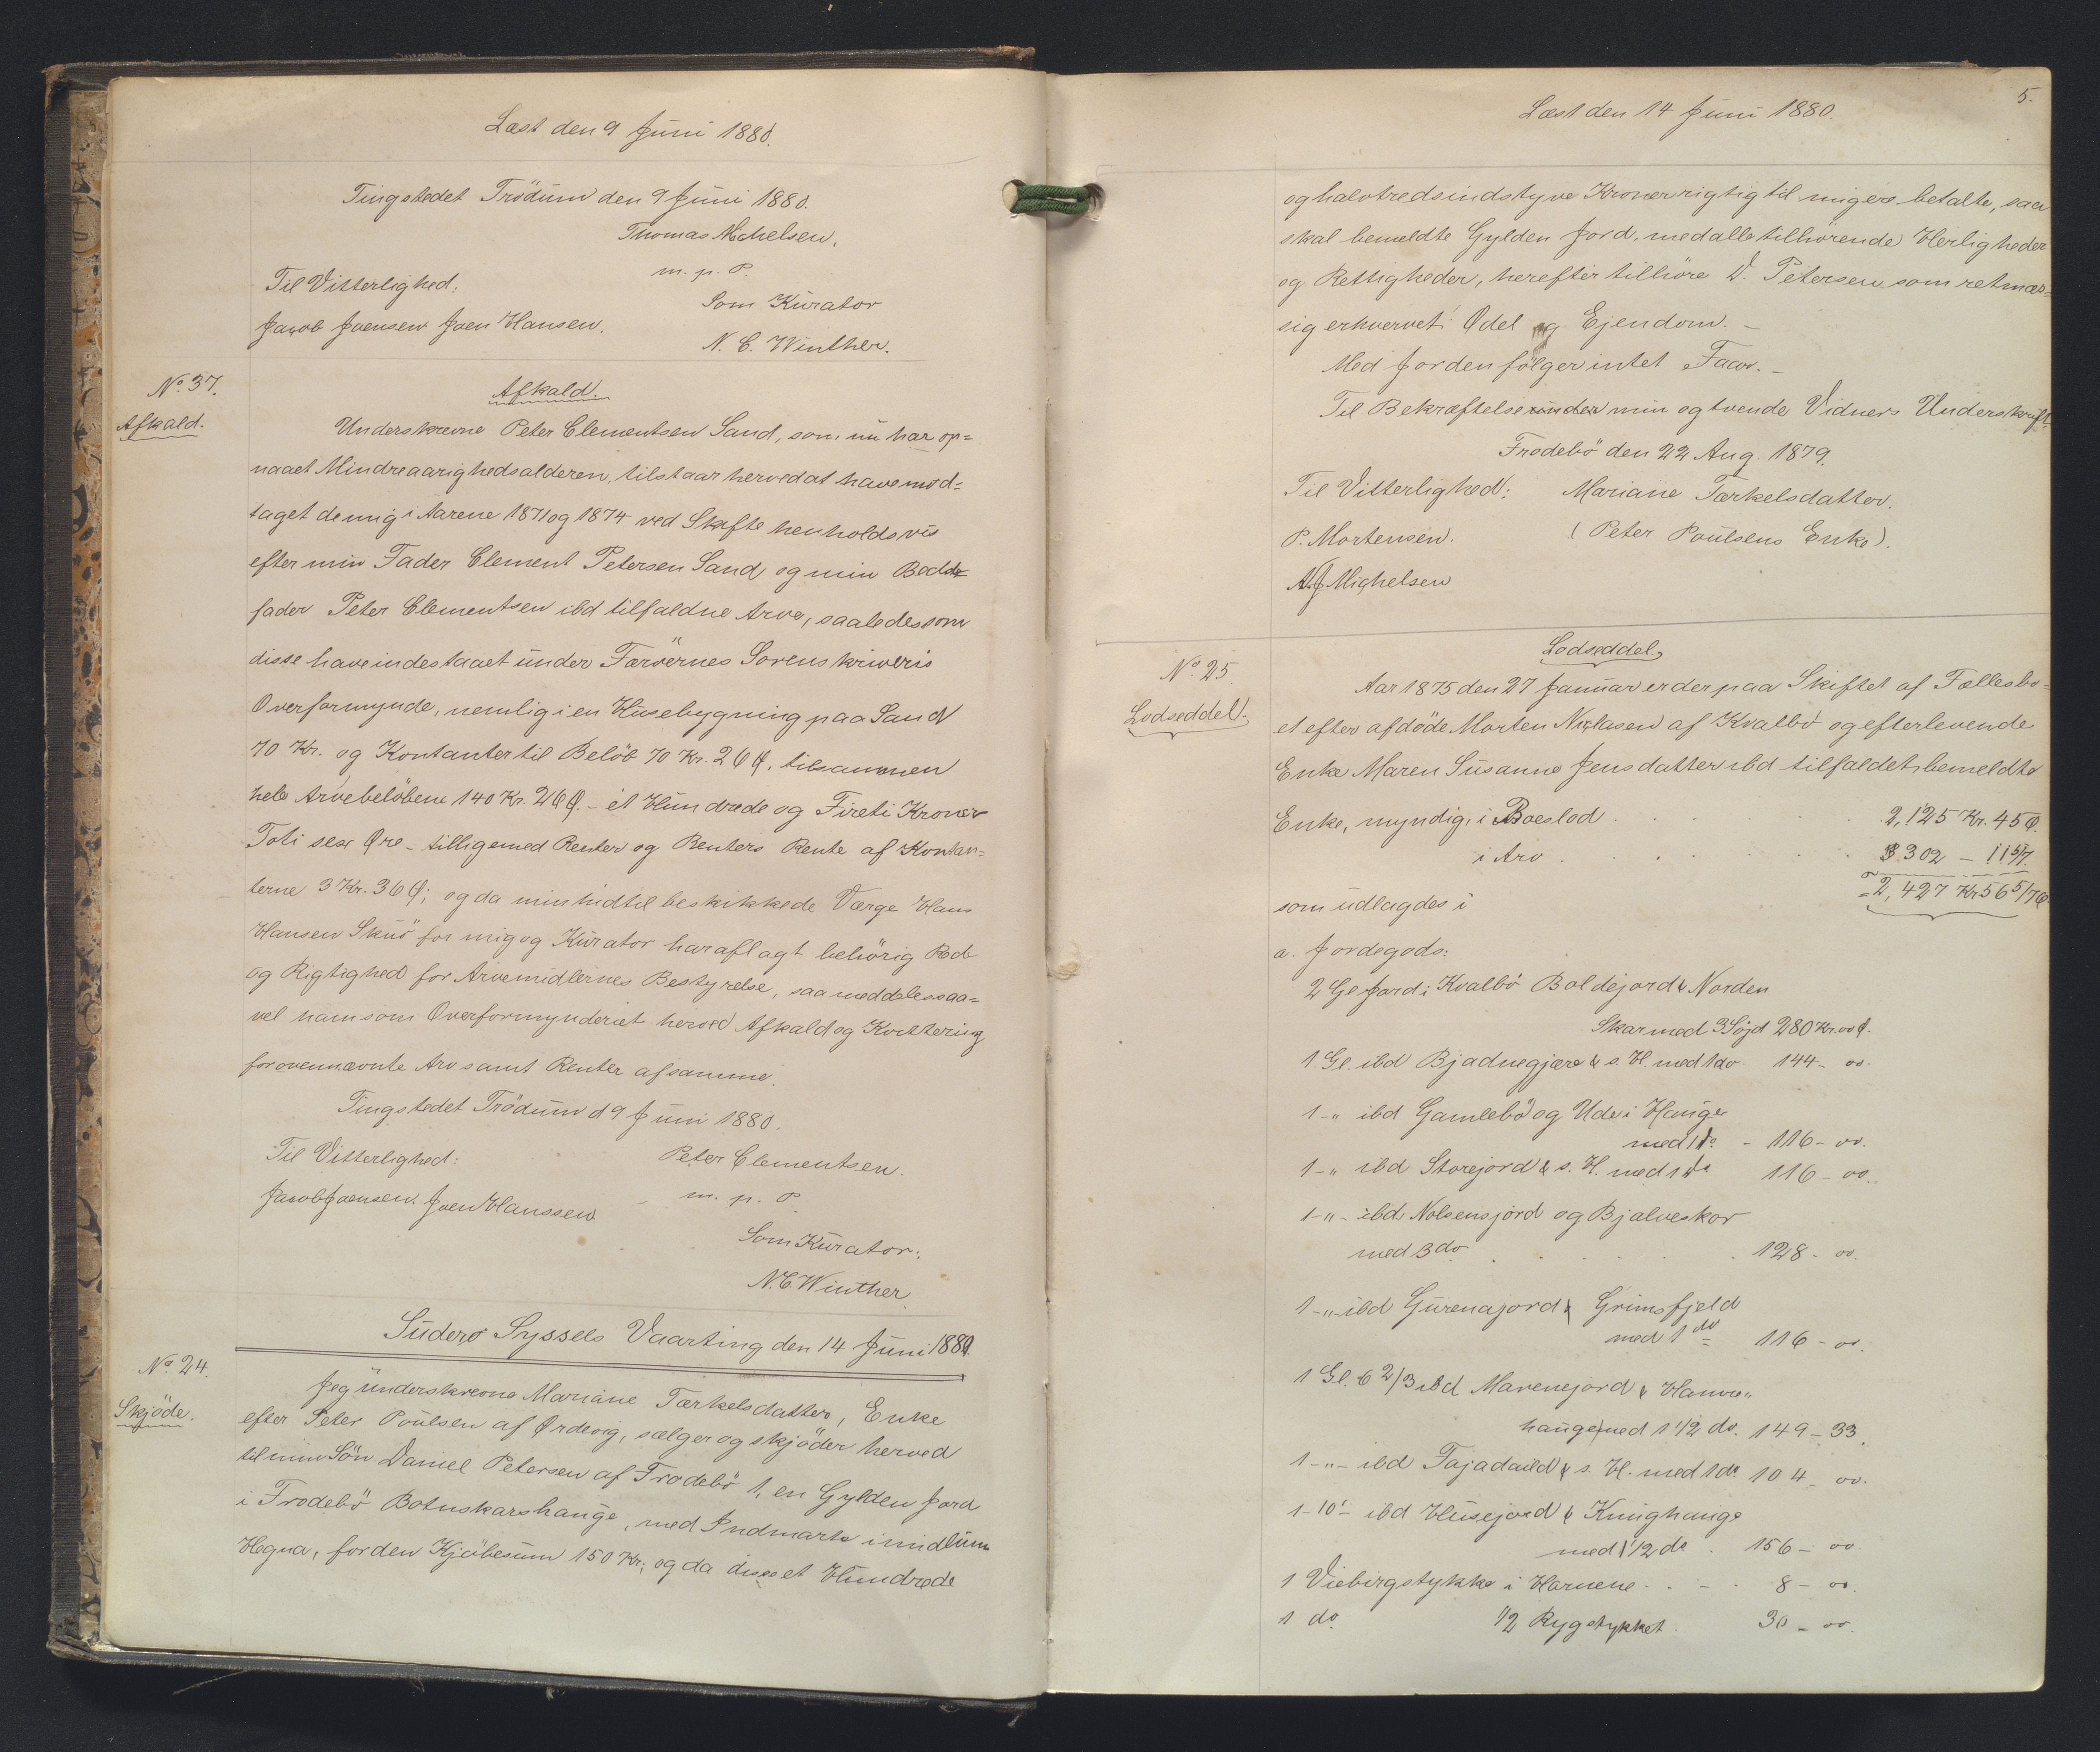 Læst den 9 Juni 1880.
Tingstedet Trödum den 9 Juni 1880.
Thomas Michelsen.
m. p. P.
Til Vitterlighed:
Som Kurator
Jacob Joensen Joen Hansen.
N. C. Winther.
No. 37.
Afkald.
Afkald.
Underskrevne Peter Clementsen Sand, som nu har op=
naaet Mindreaarighedsalderen, tilstaar herved at have mod=
taget de mig i Aarene 1871 og 1874 ved Skifte henholdsvis
efter min Fader Clement Petersen Sand og min Bedste
fader Peter Clementsen ibd tilfaldne Arve, saaledes som
disse have indestaaet under Færöernes Sorenskriveris
Overformynde, nemlig i en Husebygning paa Sand
70 Kr. og Kontanter til Belöb 70 Kr. 26 Ø, tilsammen
hele Arvebelöbene 140 Kr. 26 Ø. - et Hundrede og Fireti Kroner
Toti sex Øre - tilligemed Renter og Renters Rente af Kontan=
terne 3 Kr. 36 Ø; og da min hidtil beskikkede Værge Hans
Hansen Skuö for mig og Kurator har aflagt behörig Red
og Rigtighed for Arvemidlernes Bestyrelse, saa meddeles saa=
vel ham som Overformynderiet herved Afkald og Kvittering
for ovennævnte Arv samt Renter af samme.
Tingstedet Trödum d 9 Juni 1880.
Til Vitterlighed:
Peter Clementsen.
Jacob Joensen. Joen Hanssen
m. p. P.
Som Kurator:
N. C. Winther.
Suderö Syssels Vaarting den 14 Juni 1880.
No. 24.
Skjöde.
Jeg underskrevne Mariane Tærkelsdatter, Enke
efter Peter Poulsen af Ørdevig, sælger og skjöder herved
til min Sön Daniel Petersen af Frodebö 1, en Gylden Jord
i Frodebö Botnskarshauge, med Indmark imidlum
Hegna, for den Kjöbesum 150 Kr.; og da disse et Hundrede
5.
Læst den 14 Juni 1880.
og halvtredsindstyve Kroner rigtig til mig ere betalte, saa
skal bemeldte Gylden Jord, med alle tilhörende Herligheder
og Rettigheder, herefter tilhöre D. Petersen som retmæs=
sig erhvervet Odel og Ejendom. -
Med Jorden fölger intet Faar. -
Til Bekræftelse under min og tvende Vidners Underskrift.
Frodebö den 22 Aug. 1879.
Til Vitterlighed: Mariane Tærkelsdatter.
P. Mortensen. (Peter Poulsens Enke).
A. J. Michelsen
No. 25.
Lodseddel.
Lodseddel.
Aar 1875 den 27 Januar er der paa Skiftet af Fællesbo=
et efter afdöde Morten Niclasen af Kvalbö og efterlevende
Enke Maren Susanne Jensdatter ibd tilfaldet bemeldte
Enke, myndig, i Boeslod . . . 2,125 Kr. 45 Ø.
i Arv . . . 302 - 11 5/7.
= 2,427 Kr 56 5/7 Ø
som udlagdes i
a. Jordegods:
2 Gl Jord i Kvalbö Boldejord & Norden
Skar med 3 Söjd 280 Kr. oo Ø.
1 Gl. ibd Bjadnegjære & s. H. med 1 do 144 - oo.
1 -" ibd Gamlebö og Ude i Hauge
med 1 do - 116 - oo.
1 -" ibd Storejord & s. H. med 1 do 116 - oo.
1 -"- ibd Nolsensjord og Bjalveskor
med 3 do . . . 128 - oo.
1 -"- ibd Gurenajord & Grimsfjeld
med 1 do 116 - oo.
1 Gl. 6 2/3 ibd Marenejord & Hamre"
hauge med 1 1/2 do. 149 - 33.
1 -"- ibd Tajadaild & s. H. med 1 do 104 - oo.
1 - 10' - ibd Husejord & Knighauge
med 1 1/2 do . 156 - oo.
1 Viebirgstykke i Harnene . . - . 8 - oo.
1 do. 1/2 Rygstykket . 30 - oo.